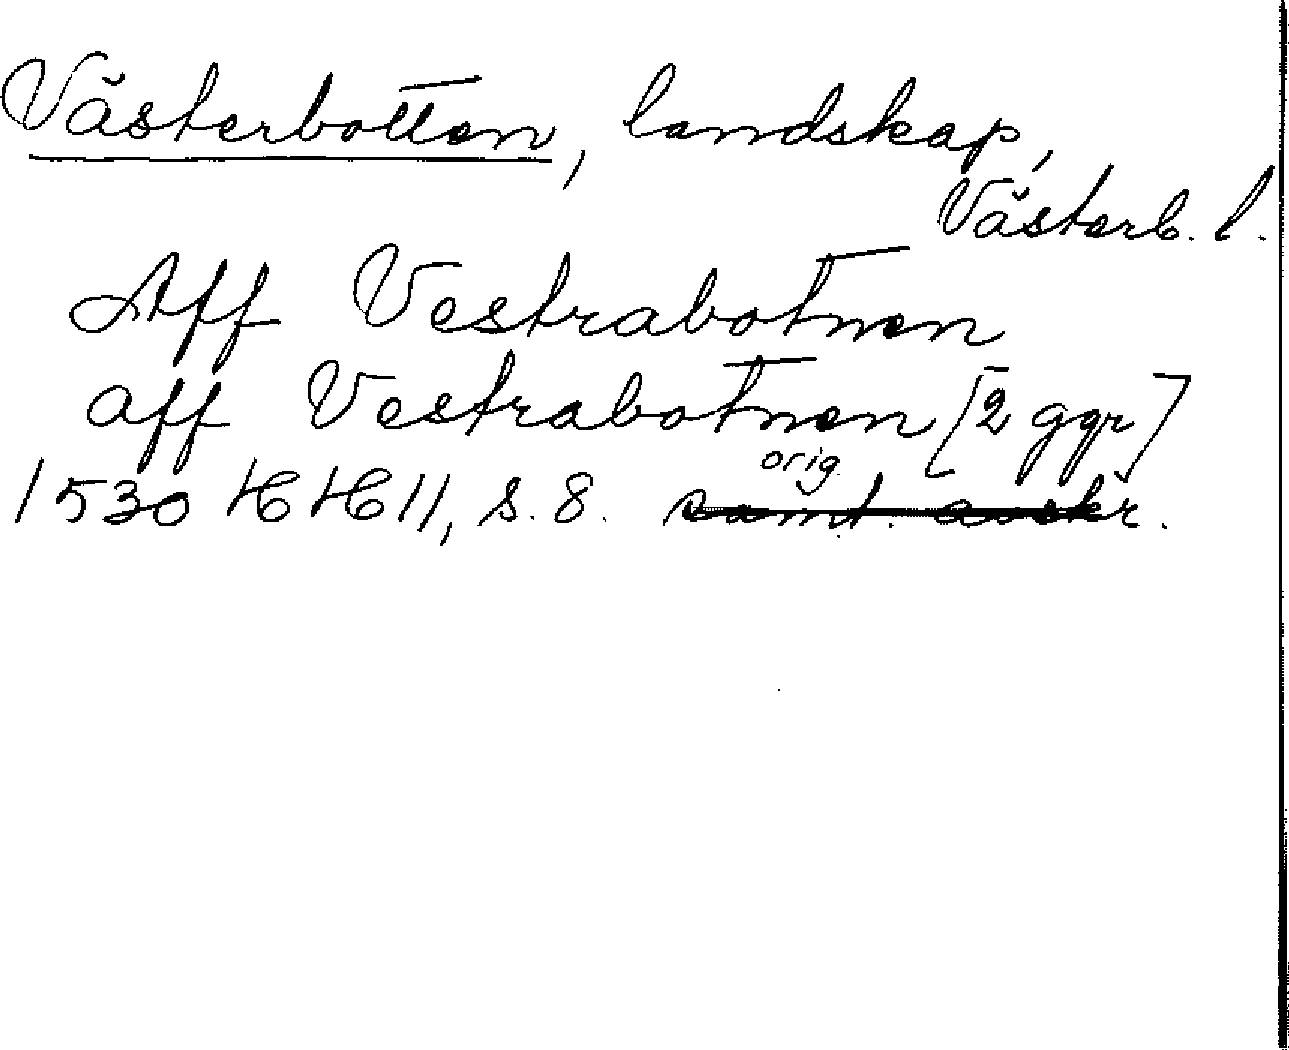 Västerbotten, landskap,
Västerb. l.
Aff Vestrabotnen
aff Vestrabotnen [2 ggr]
orig.
1530 HH 11, s. 8. samt. avskr.